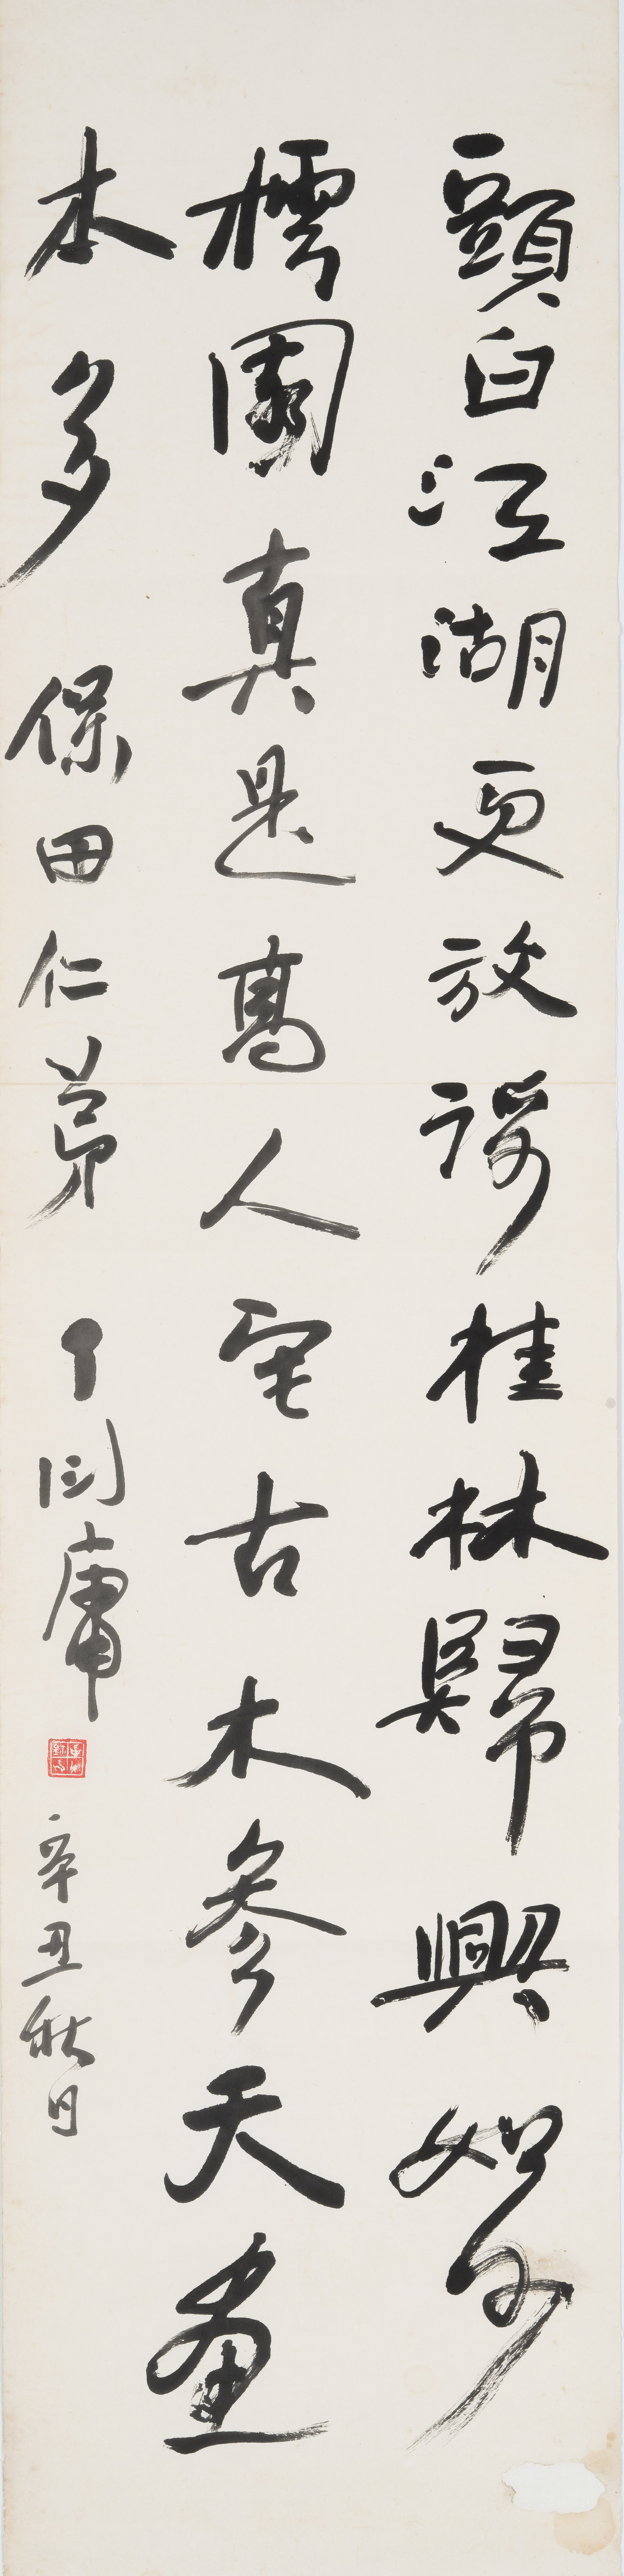 頭白江湖更放歌桂林歸興如何
樗園真是高人宅古木參天畫
本多 保田仁弟 丁衍庸
辛丑秋日